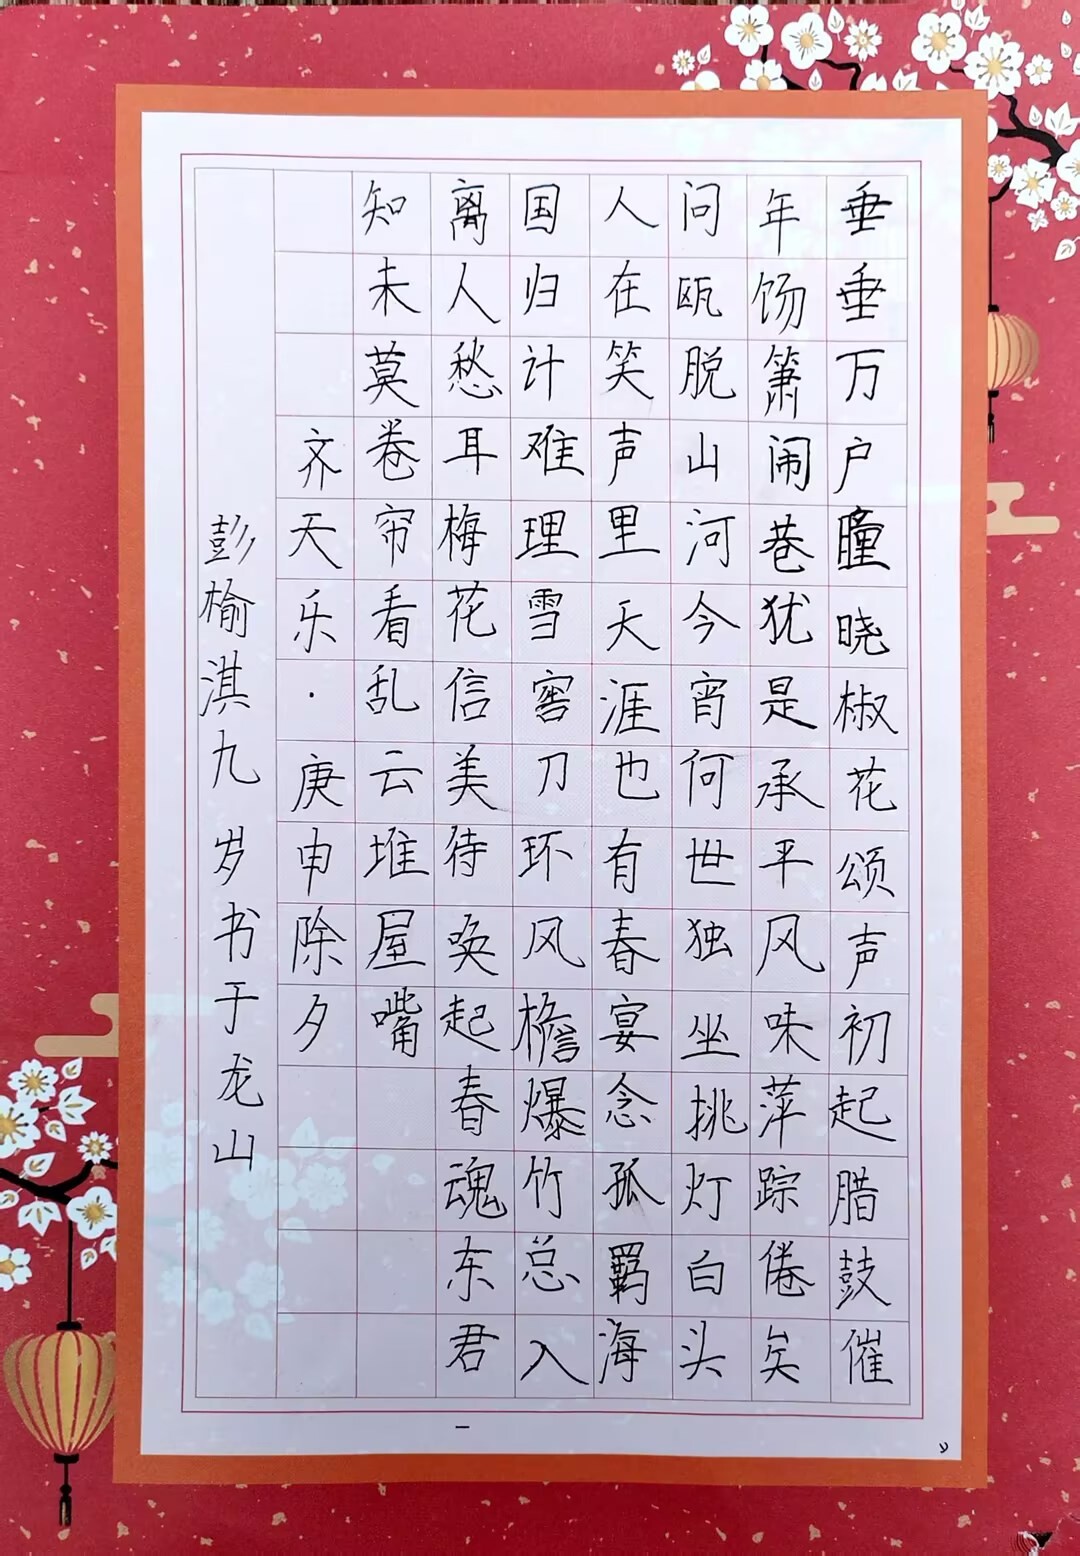 垂垂万户瞳晓椒花颂声初起腊鼓催
年饧箫闹巷犹是承平风味萍踪倦矣
问瓯脱山河今宵何世独坐挑灯白头
人在笑声里天涯也有春宴念孤羁海
国归计难理雪窖刀环风檐爆竹总入
离人愁耳梅花信美待唤起春魂东君
知未莫卷帘看乱云堆屋嘴
齐天乐·庚申除夕
彭榆淇九岁书于龙山